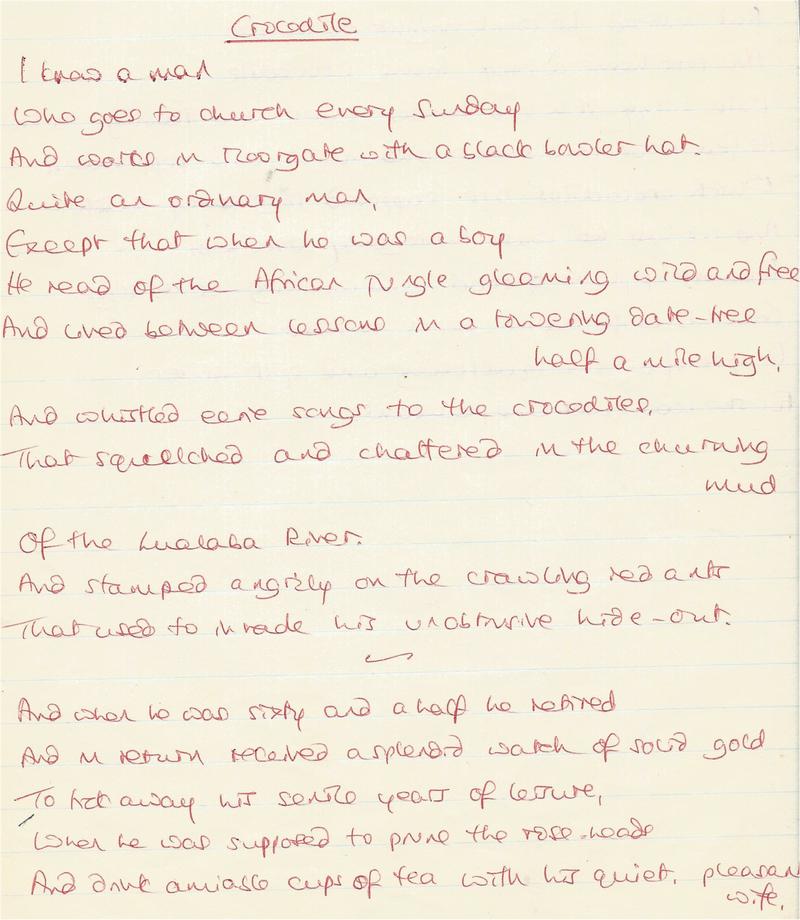 Crocodile
I know a man
Who goes to church every Sunday
And works in Moorgate with a black bowler hat.
Quite an ordinary man,
Except that when he was a boy
He read of the African jungle gleaming wild and free
And lived between lessons in a towering date-tree
half a mile high,
And whistled eerie songs to the crocodiles,
That squelched and chattered in the churning
mud
Of the Lualaba River.
And stamped angrily on the crawling red ants
That used to invade his unobtrusive hide-out.
And when he was sixty and a half he retired
And in return received a splendid watch of solid gold
To tick away his senile years of leisure,
When he was supposed to prune the rose-heads
And drink amiable cups of tea with his quiet, pleasan
wife,